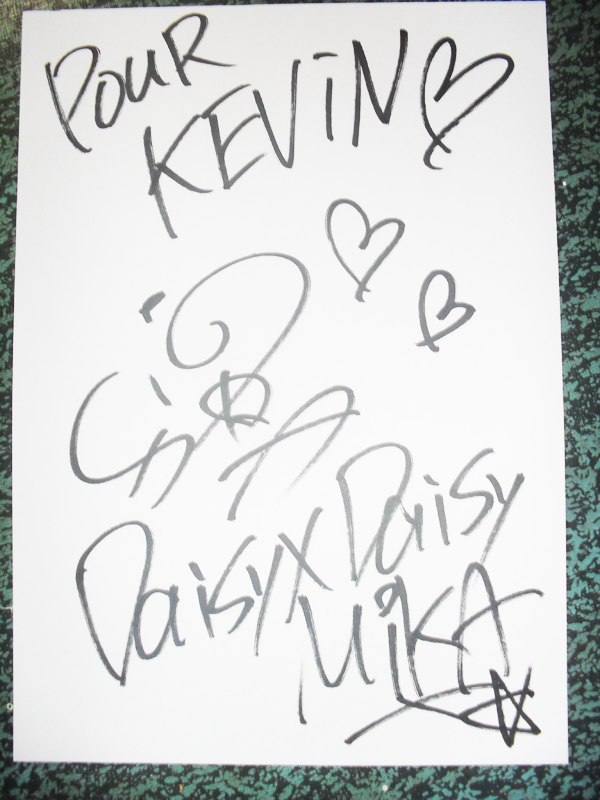 POUR
KEVIN
Daisy x Daisy
MiKA